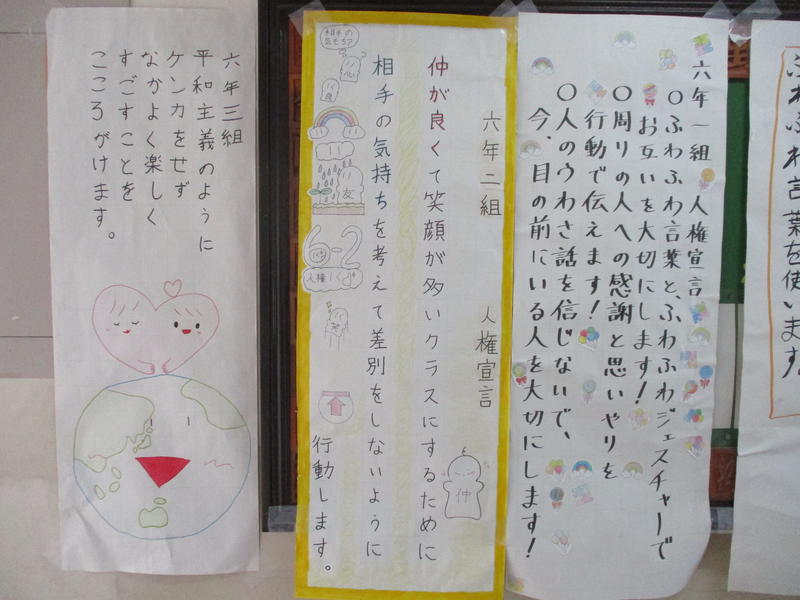 ふわふわ言葉を使います。
六年一組 人権宣言
○ふわふわ言葉と、ふわふわジェスチャーで
お互いを大切にします！
○周りの人への感謝と思いやりを
行動で伝えます！
○人のウわさ話を信じないで、
今、目の前にいる人を大切にします！
六年二組 人権宣言
仲が良くて笑顔が多いクラスにするために
相手の気持ちを考えて差別をしないように
行動します。
仲
相手の
気もち？
心
友
6-2
人権
六年三組
平和主義のように
ケンカをせず
なかよく楽しく
すごすことを
こころがけます。